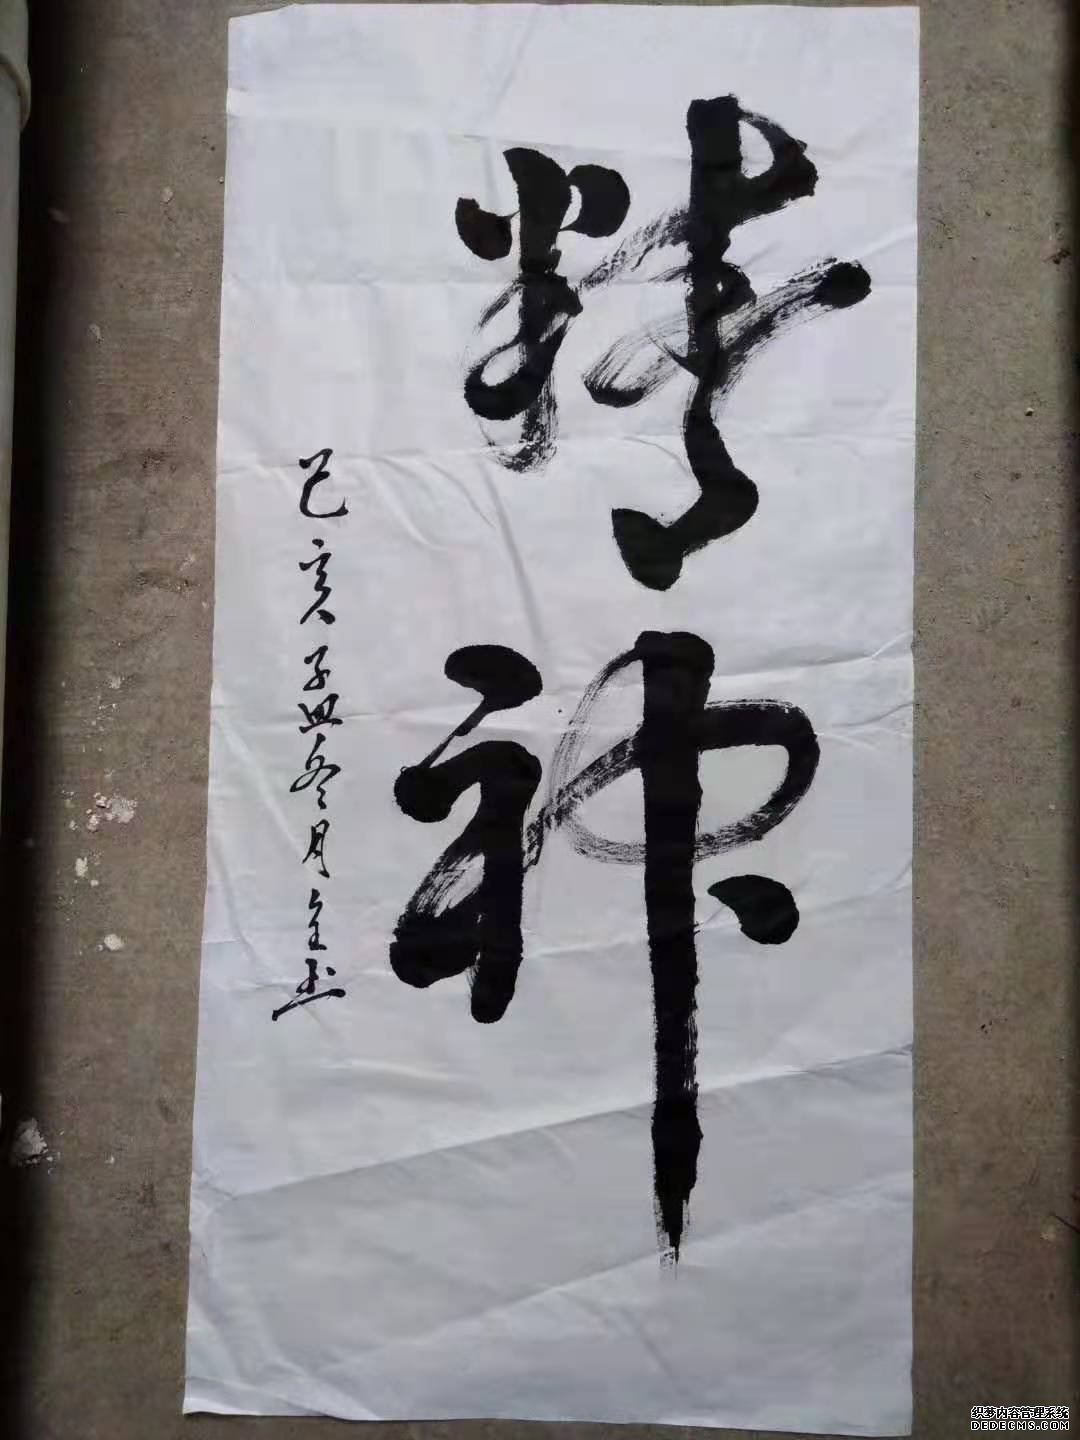 精神
己亥孟冬月全书
织梦内容管理系统
DEDECMS.COM